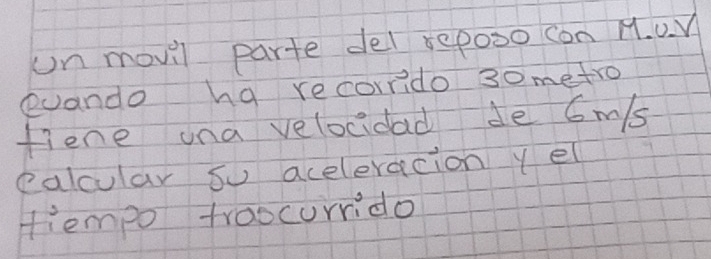 un movil parte del reposo con M.U.V
cuando ha recorrido 30 metro
tiene una velocidad de 6 m/s
calcular su aceleracion y el
tiempo trascurrido